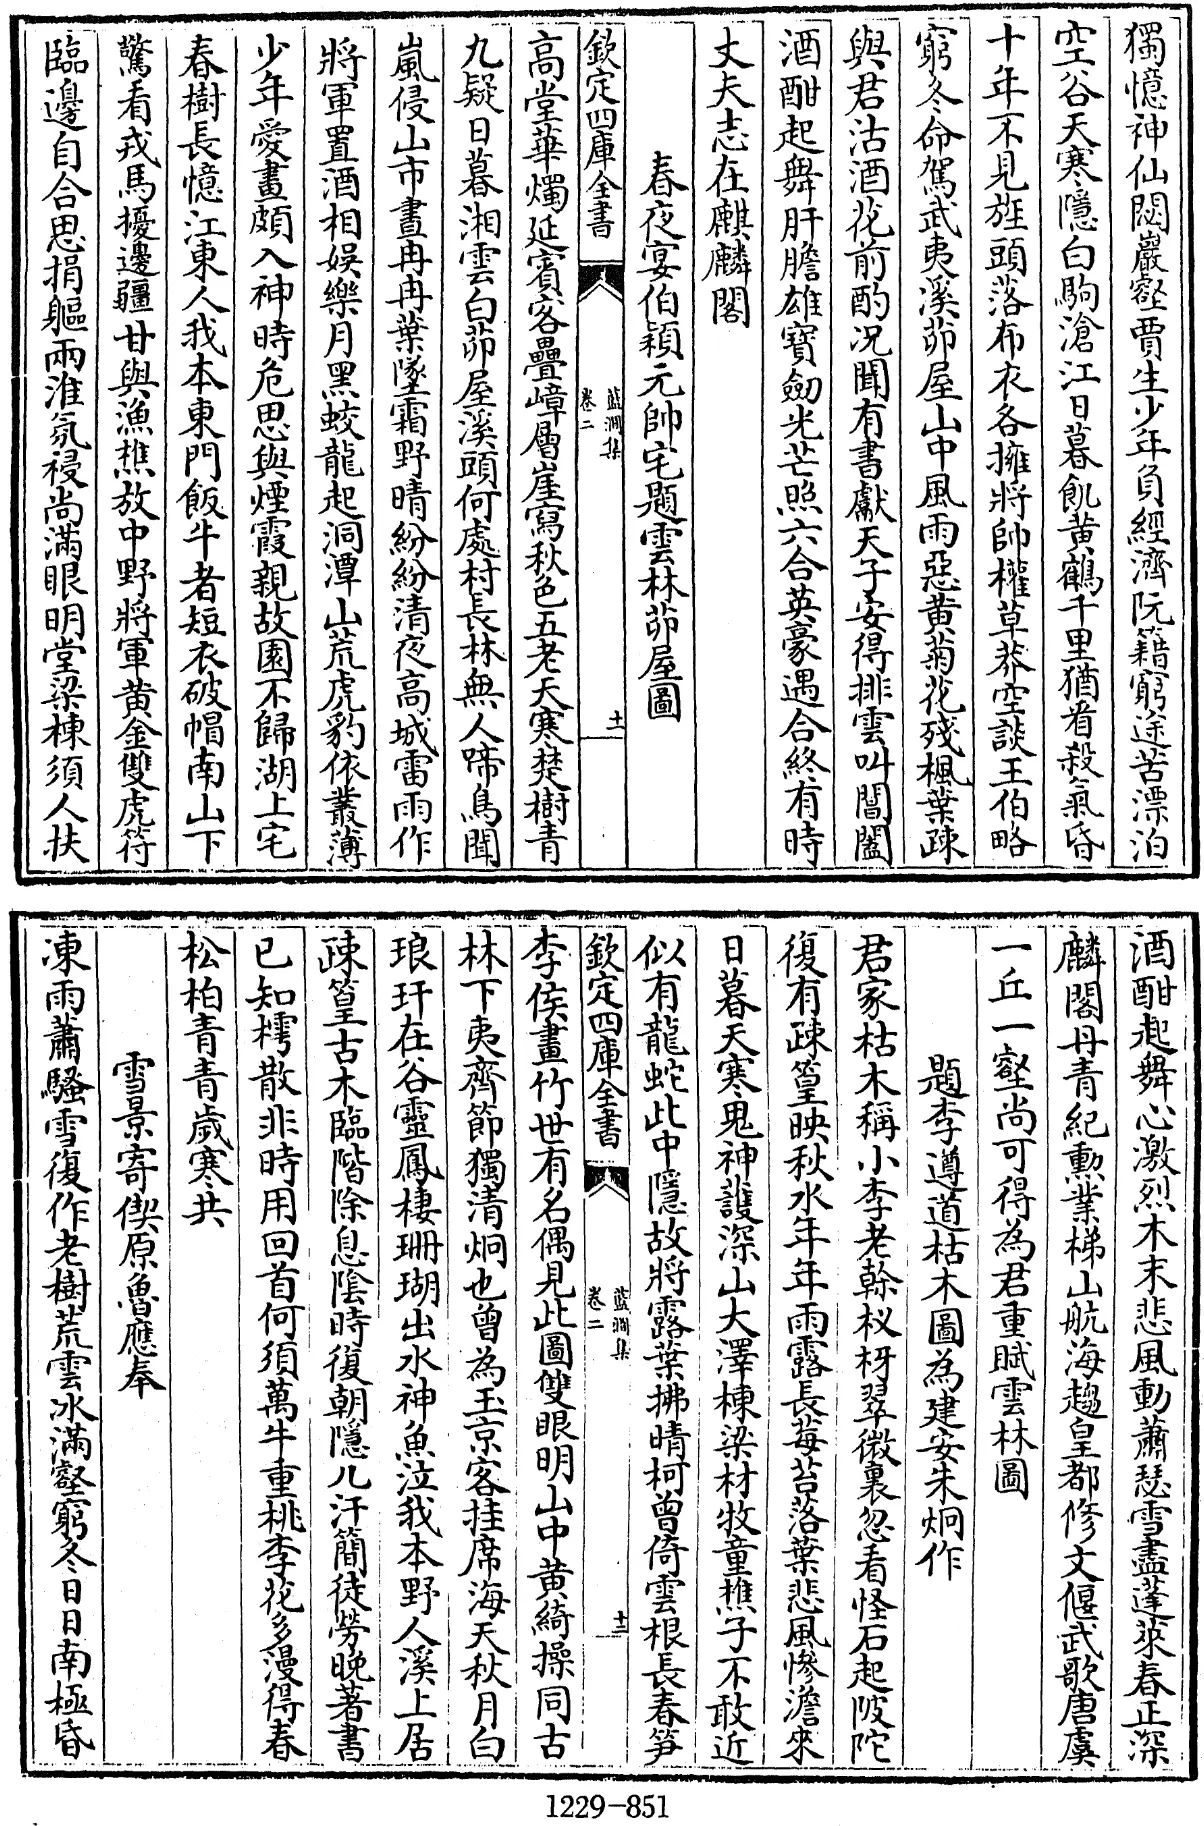 獨憶神仙閟巖壑賈生少年負經濟阮籍窮途苦漂泊
空谷天寒隱白駒滄江日暮飢黄鶴千里猶看殺氣昏
十年不見旄頭落布衣各擁將帥權草莽空談王伯略
窮冬命駕武夷溪茆屋山中風雨惡黄菊花殘楓葉疎
與君沽酒花前酌况聞有書獻天子安得排雲叫閶闔
酒酣起舞肝膽雄寶劒光芒照六合英豪遇合終有時
丈夫志在麒麟閣
春夜宴伯穎元帥宅題雲林茆屋圖
欽定四庫全書
藍澗集
卷二
十一
高堂華燭延賓客疊嶂層崖寫秋色五老天寒楚樹青
九疑日暮湘雲白茆屋溪頭何處村長林無人啼鳥聞
嵐侵山市晝冉冉葉墜霜野晴紛紛清夜高城雷雨作
將軍置酒相娱樂月黑蛟龍起洞潭山荒虎豹依叢薄
少年愛畫頗入神時危思與煙霞親故園不歸湖上宅
春樹長憶江東人我本東門飯牛者短衣破帽南山下
驚看戎馬擾邊疆甘與漁樵放中野將軍黄金雙虎符
臨邊自合思捐軀兩淮氛祲尚滿眼明堂梁棟須人扶
酒酣起舞心激烈木末悲風動蕭瑟雪盡蓬萊春正深
麟閣丹青紀勲業梯山航海趨皇都修文偃武歌唐虞
一丘一壑尚可得為君重賦雲林圖
題李遵道枯木圖為建安朱炯作
君家枯木稱小李老榦杈枒翠微裏忽看怪石起陂陀
復有疎篁映秋水年年雨露長莓苔落葉悲風慘澹來
日暮天寒鬼神護深山大澤棟梁材牧童樵子不敢近
似有龍蛇此中隱故將露葉拂晴柯曾倚雲根長春笋
欽定四庫全書
藍澗集
卷二
十二
李侯畫竹世有名偶見此圖雙眼明山中黄綺操同古
林下夷齊節獨清炯也曾為玉京客挂席海天秋月白
琅玕在谷靈鳳棲珊瑚出水神魚泣我本野人溪上居
疎篁古木臨階除息陰時復朝隱几汗簡徒勞晚著書
已知樗散非時用回首何須萬牛重桃李花多漫得春
松柏青青歲寒共
雪景寄偰原魯應奉
凍雨蕭騷雪復作老樹荒雲冰滿壑窮冬日日南極昏
1229-851